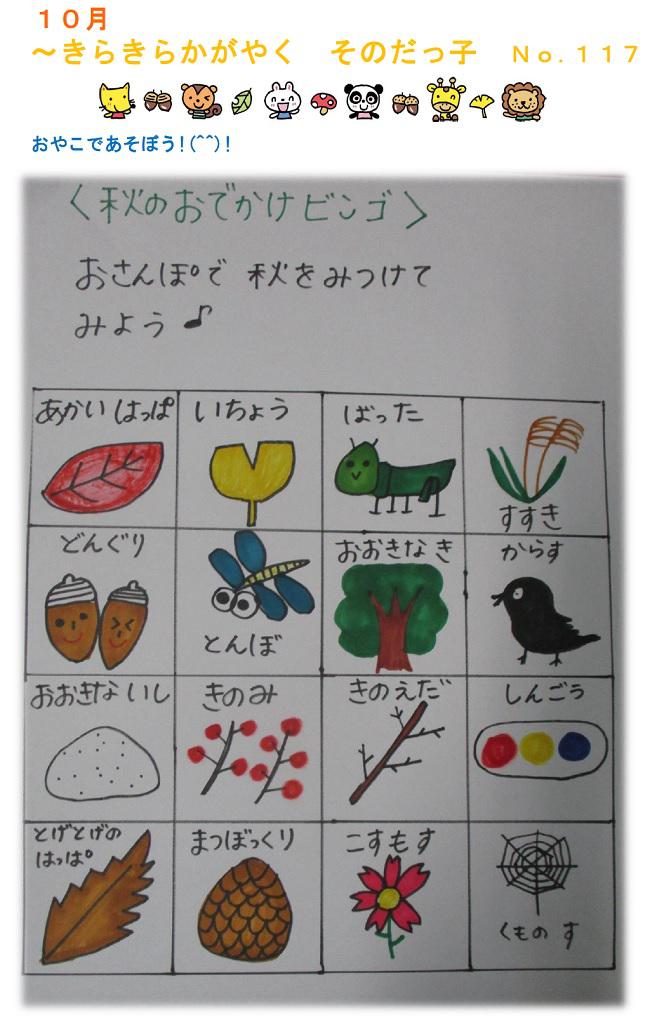 １０月
～きらきらかがやく　そのだっ子　Ｎｏ．１１７
おやこであそぼう!(^^)!
〈秋のおでかけビンゴ〉
おさんぽで 秋をみつけて
みよう♪
あかい はっぱ
いちょう
ばった
すすき
どんぐり
とんぼ
おおきな き
からす
おおきな いし
きのみ
きのえだ
しんごう
とげとげの
はっぱ
まつぼっくり
こすもす
くもの す